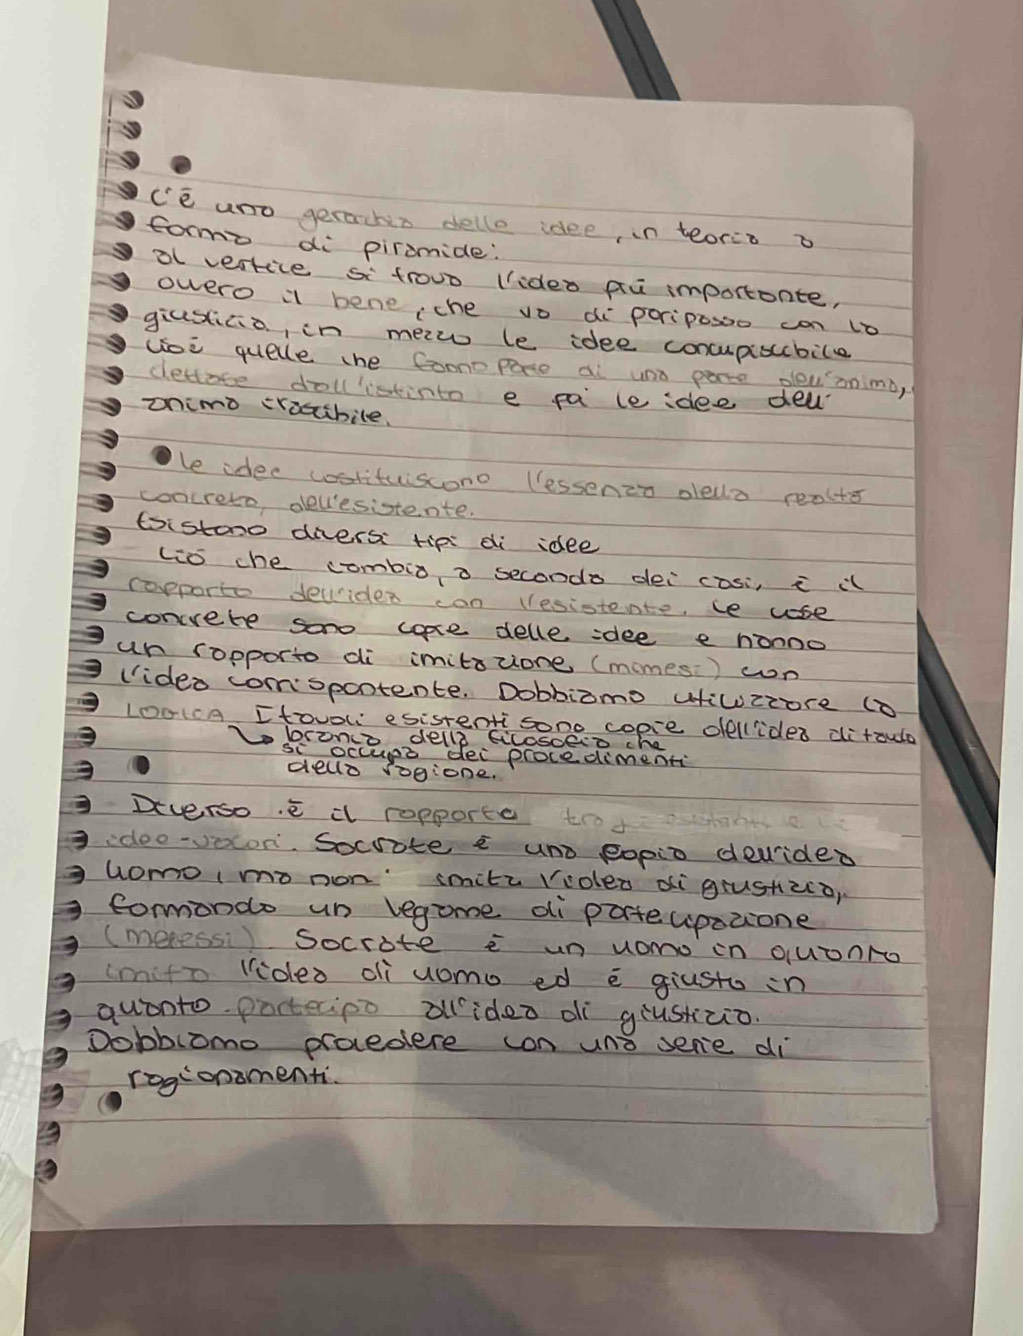 C'è una gerarchia delle idee, in teoria a
forma di piramide:
al vertice si trova l'idea più importante,
ovvero il bene, che va di pari passo con la
giustizia, in mezzo le idee concupiscibile
cioè quelle che fanno parte di una parte dell'anima,
dettate dall'istinto e poi le idee dell'
anima irascibile.
le idee costituiscono l'essenza della realtà
concreta, dell'esistente.
Esistono diversi tipi di idee
Ciò che cambia, a seconda dei casi, è il
rapporto dell'idea con l'esistente. le cose
concrete sono copie delle idee e hanno
un rapporto di imitazione (mimesi) con
l'idea corrispontente. Dobbiamo utilizzare la
LOGICA I tavoli esistenti sono copie dell'idea di tavolo
↳ branca della filosofia che
si occupa dei procedimenti
della ragione.
Diverso è il rapporto
idee-valori. Socrate è una copia dell'idea
uomo, ma non imita l'idea di giustizia,
formando un legame di partecipazione
(metessi). Socrate è un uomo in quanto
imita l'idea di uomo ed è giusto in
quanto partecipa all'idea di giustizia.
Dobbiamo procedere con una serie di
ragionamenti.